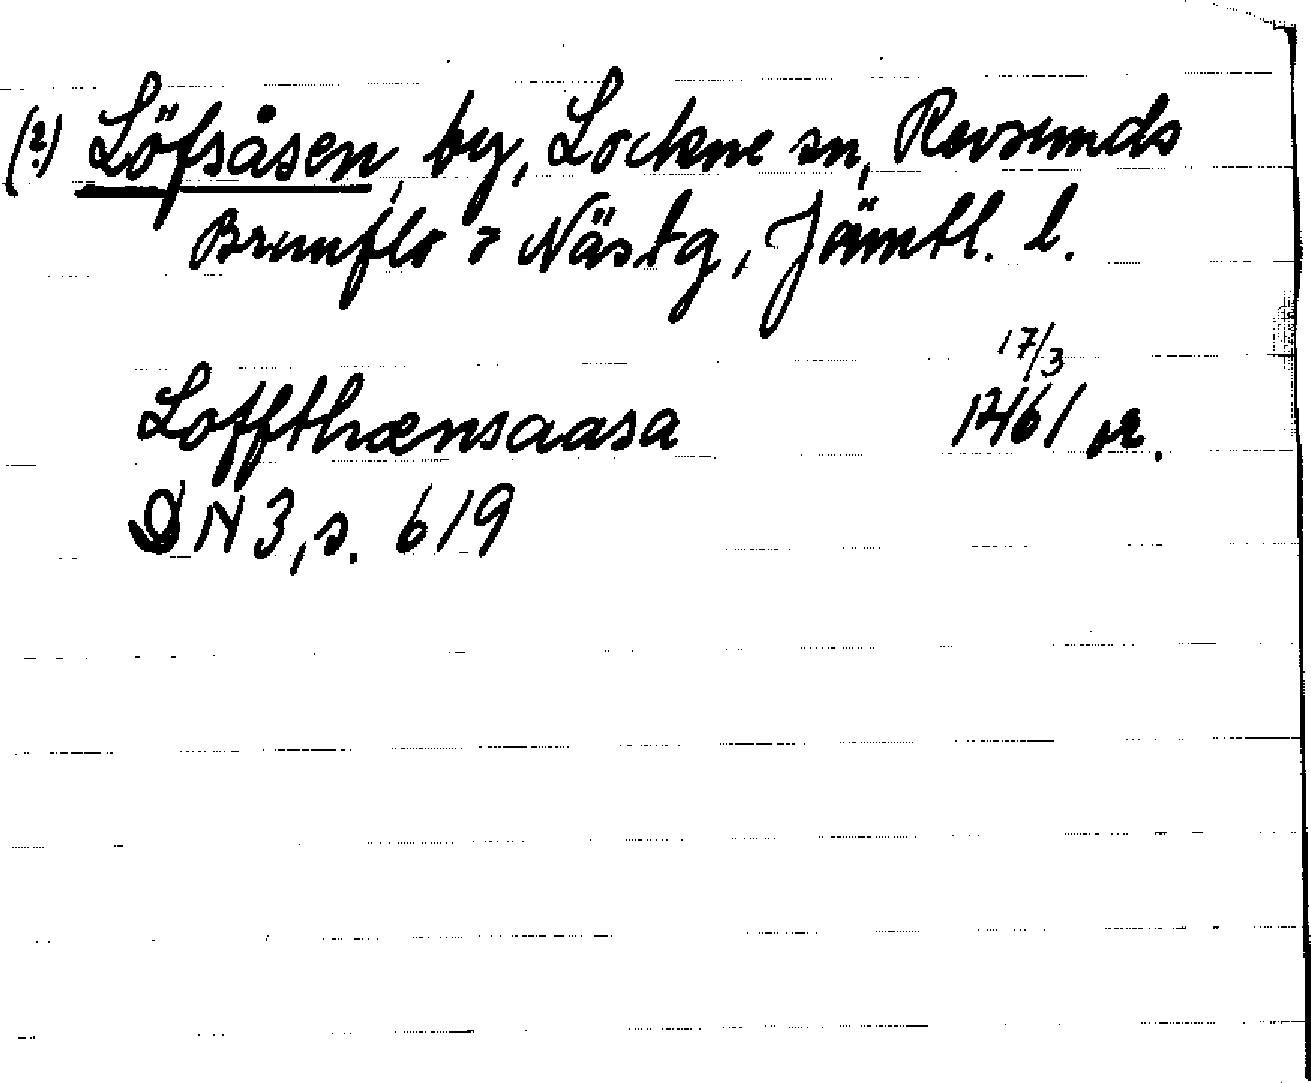 (?) Löfsåsen, by, Lockne sn, Revsunds
Brunflo o Näs tg, Jämtl. l.
17/3
Loffthænsaasa 1461 or.
DN 3, s. 619